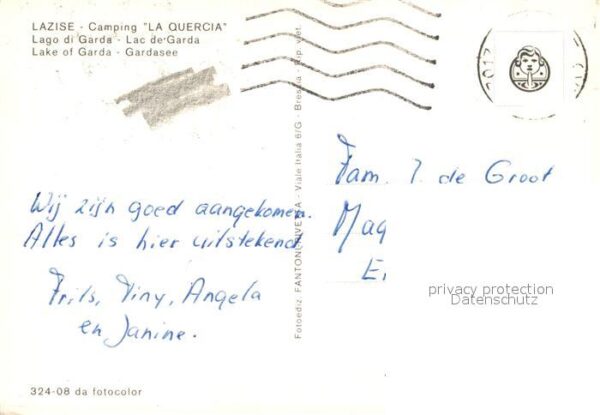 LAZISE - Camping "LA QUERCIA"
Lago di Garda - Lac de Garda
Lake of Garda - Gardasee
Wij zijn goed aangekomen.
Alles is hier uitstekend
Frits, Tiny, Angela
en Janine.
324-08 da fotocolor
Fotoediz. FANTONI - Viale Italia 6/G - Brescia - Rip. viet.
Fam. de Groot
Mag
E.
privacy protection
Datenschutz